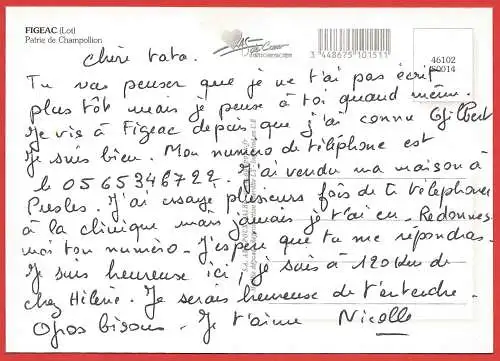 FIGEAC (Lot)
Patrie de Champollion
3 448675 101511
46102
60014
chère tata.
Tu vas penser que je ne t'ai pas écrit
plus tôt mais je pense à toi quand même.
Je vis à Figeac depuis que j'ai connu Gilbert
Je suis bien. Mon numéro de téléphone est
le 0565346722. J'ai vendu ma maison à
Presles. J'ai essayé plusieurs fois de te téléphoner
à la clinique mais jamais je t'ai eu. Redonnes
moi ton numéro. J'espère que tu me répondras.
Je suis heureuse ici, je suis à 120 km de
chez Hélène. Je serais heureuse de t'entendre.
Gros bisous. Je t'aime Nicolle